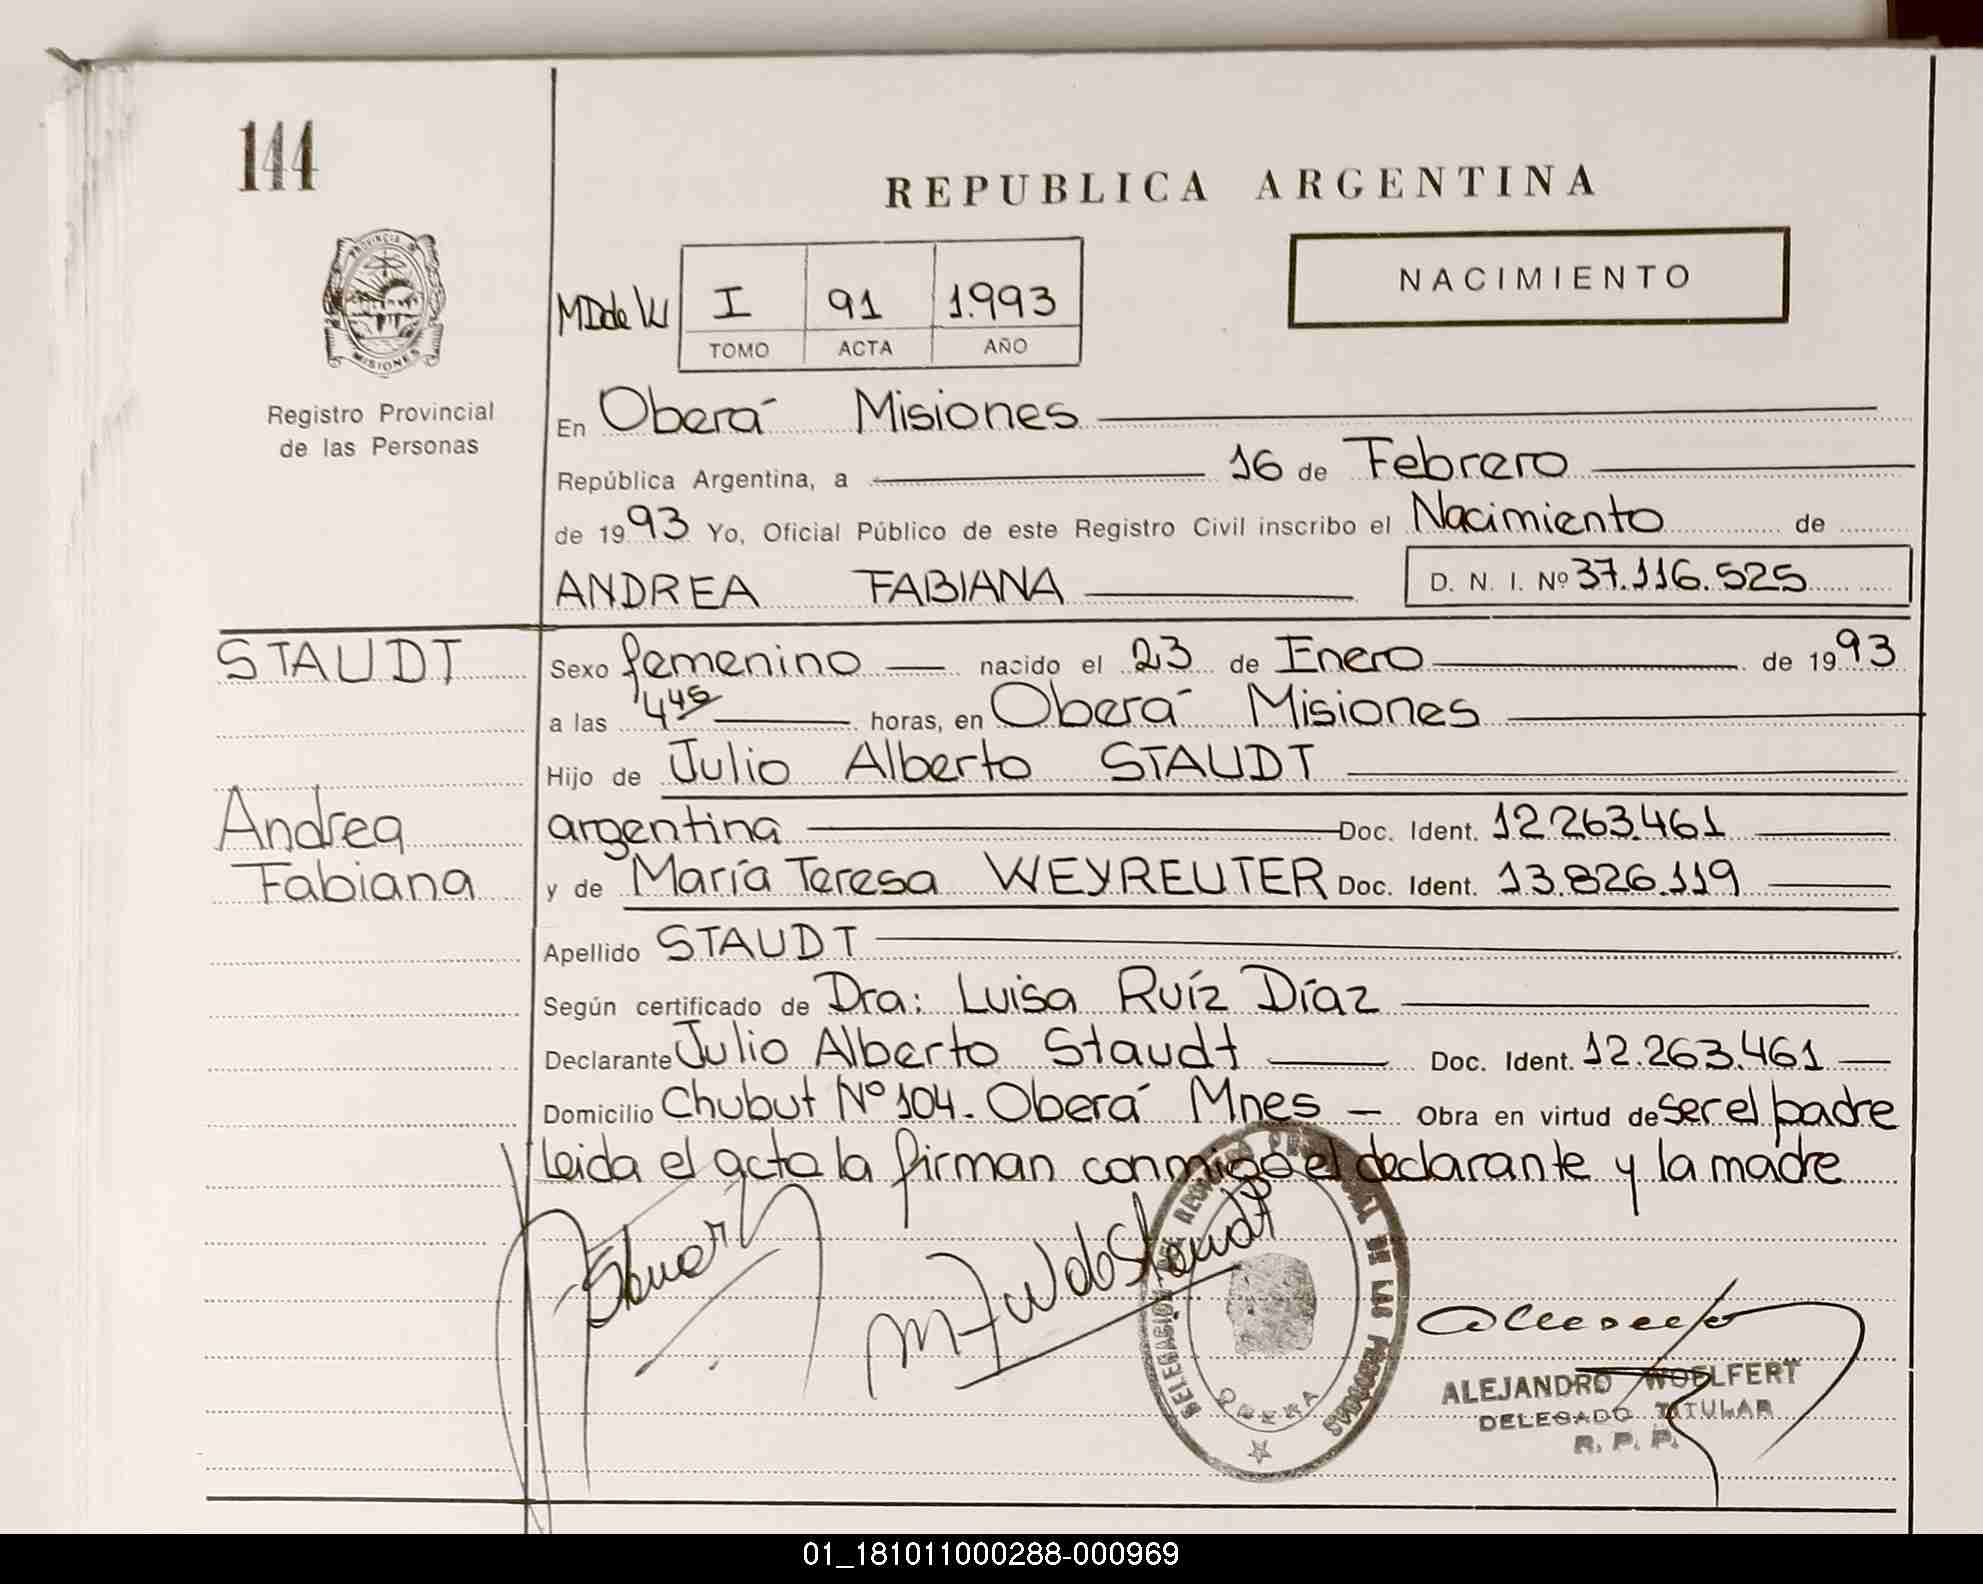 144
REPUBLICA ARGENTINA
NACIMIENTO
PROVINCIA DE
MISIONES
Registro Provincial
de las Personas
I 91 1.993
TOMO ACTA AÑO
En Oberá Misiones
República Argentina, a 16 de Febrero
de 1993 Yo, Oficial Público de este Registro Civil inscribo el Nacimiento de
ANDREA FABIANA D. N. I. Nº 37.116.525
STAUDT
Sexo femenino nacido el 23 de Enero de 1993
a las 4 45 horas, en Oberá Misiones
Hijo de Julio Alberto STAUDT
Andrea
Fabiana
argentina Doc. Ident. 12.263.461
y de María Teresa WEYREUTER Doc. Ident. 13.826.119
Apellido STAUDT
Según certificado de Dra: Luisa Ruíz Díaz
Declarante Julio Alberto Staudt Doc. Ident. 12.263.461
Domicilio Chubut Nº 104. Oberá Mnes Obra en virtud de ser el padre
Leida el acta la firman conmigo el declarante y la madre
DELEGACION DEL REGISTRO PROVINCIAL DE LAS PERSONAS
OBERA
ALEJANDRO WOELFERT
DELEGADO TITULAR
R. P. P.
01_181011000288-000969